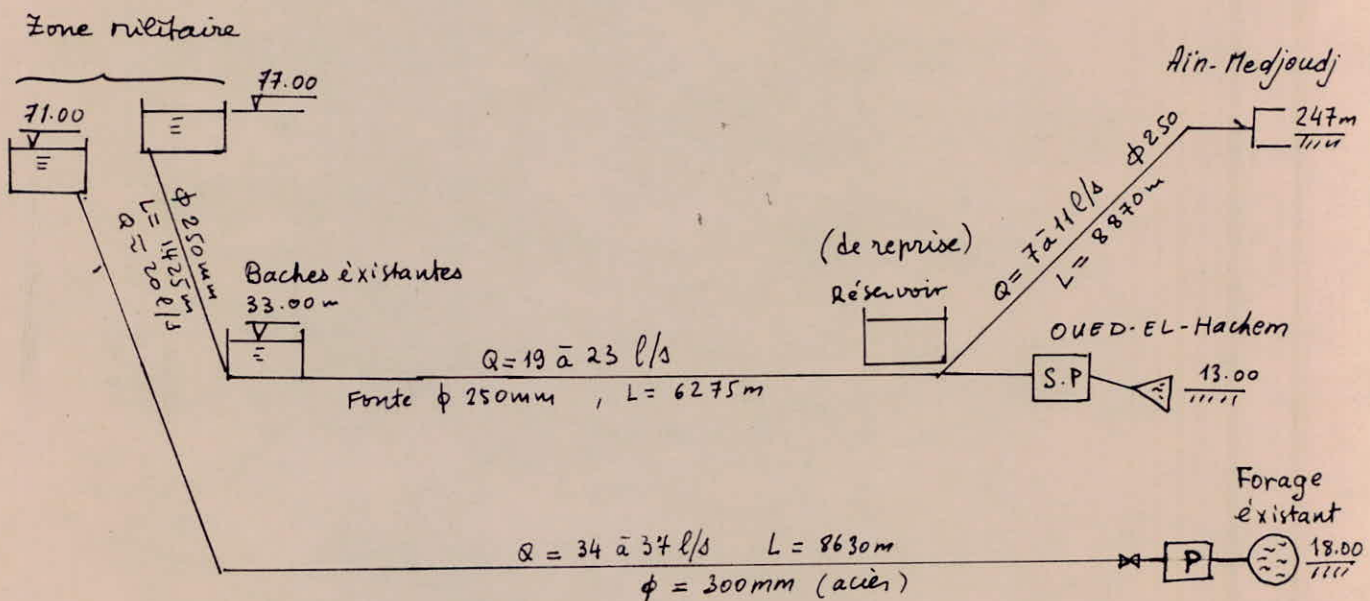 Zone militaire
71.00
77.00
ϕ 250mm
L= 1425m
Q = 20 l/s
Baches éxistantes
33.00m
Q = 19 à 23 l/s
Fonte ϕ 250mm , L = 6275m
(de reprise)
Réservoir
Q = 7 à 11 l/s ϕ 250
L = 8870m
Aïn-Medjoudj
247m
OUED-EL-Hachem
S.P
13.00
Q = 34 à 37 l/s L = 8630m
ϕ = 300mm (aciér)
P
Forage
éxistant
18.00